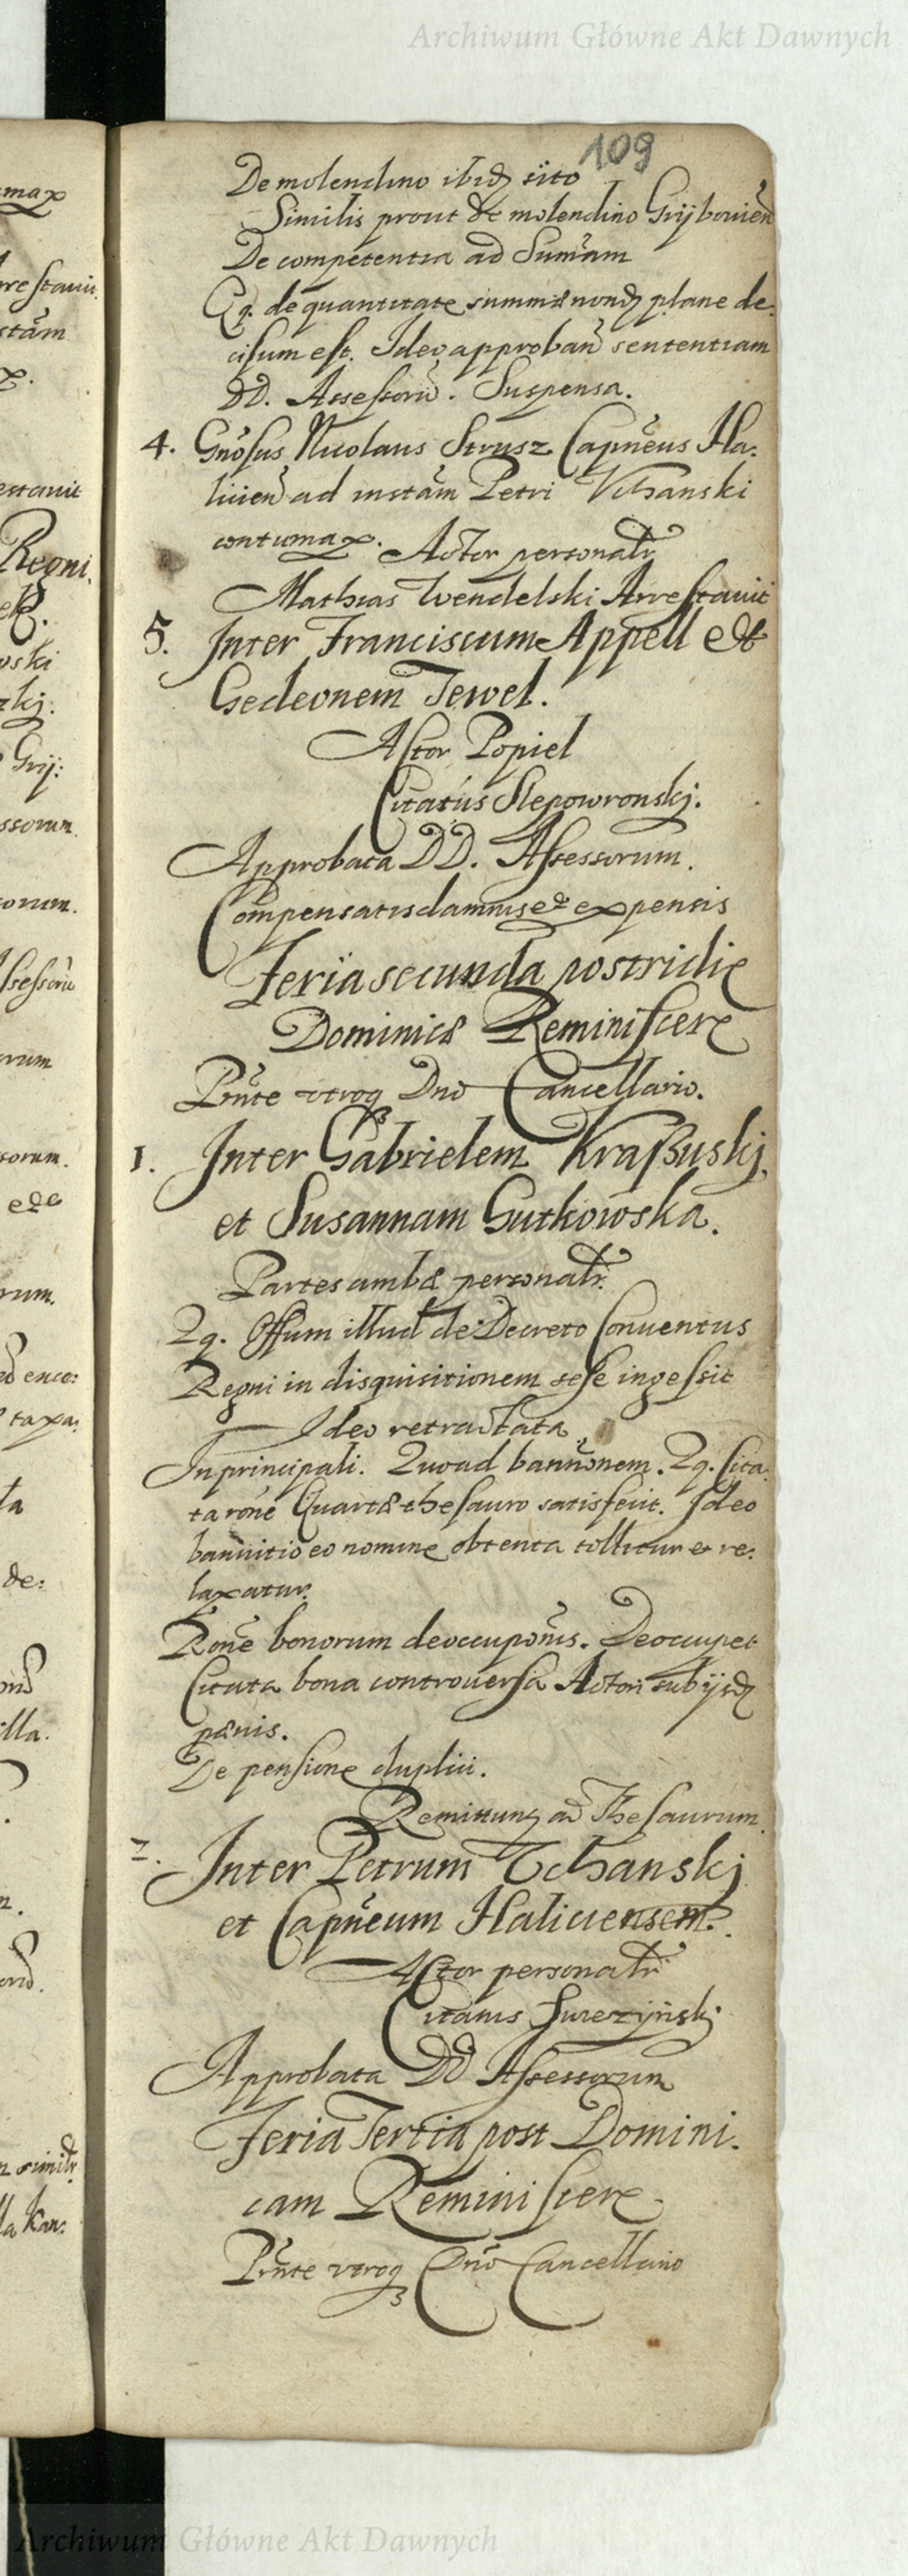 Archiwum Główne Akt Dawnych
109
De molendino ibid sito
Similis prout de molendino Grijbouien
De competentia ad Sumam
Qq. de quantitate summæ nond plane de
cisum est. Ideo approban sententiam
DD. Assessorū. Suspensa.
4. Gnosus Nicolaus Strusz Capneus Ha:
licien ad instam Petri Vchanski
contumax. Actor personalr
Mathias Wendelski Arrestauit
5. Inter Franciscum Appell et
Gedeonem Tewel.
Actor Popiel
Citatus Slepowronskj.
Approbata DD. Assessorum.
Compensatis damnis et expensis
Feria secunda postridie
Dominicæ Reminiscere
Pnte vtroq Dno Cancellario.
1. Inter Gabrielem Kraßuskj
et Susannam Gutkowska.
Partes ambæ personalr.
Qq. Offum illud de Decreto Conuentus
Regni in disquisitionem sese ingessit
Ideo retractata
In principali. Quoad bannonem. Qq. Cita
ta rone Quartæ thesauro satisfecit. Ideo
bannitio eo nomine obtenta tollitur et re:
laxatur.
Rone bonorum deoccuponis. Deoccupet
Citata bona controuersa Actori sub ijsd
pænis.
De pensione duplici.
Remittunt ad Thesaurum.
2. Inter Petrum Vchanskj
et Capneum Haliciensem.
Actor personalr
Citatus
Approbata DD Assessorum
Feria Tertia post Domini.
cam Reminiscere
Pnte vtroq Dno Cancellario
Archiwum Główne Akt Dawnych